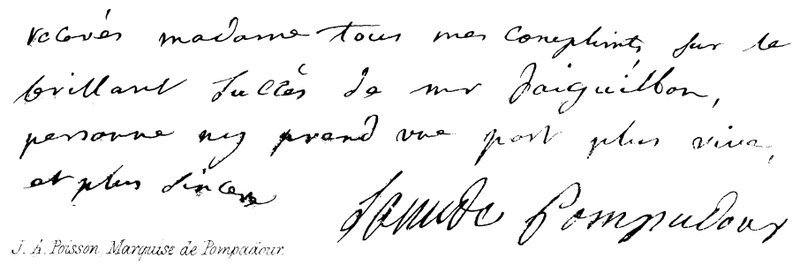 recevés madame tous mes compliments sur le
brillant succés de mr daiguillon,
personne ny prend une part plus vive,
et plus sincere
Pompadour
J. A. Poisson Marquise de Pompadour.